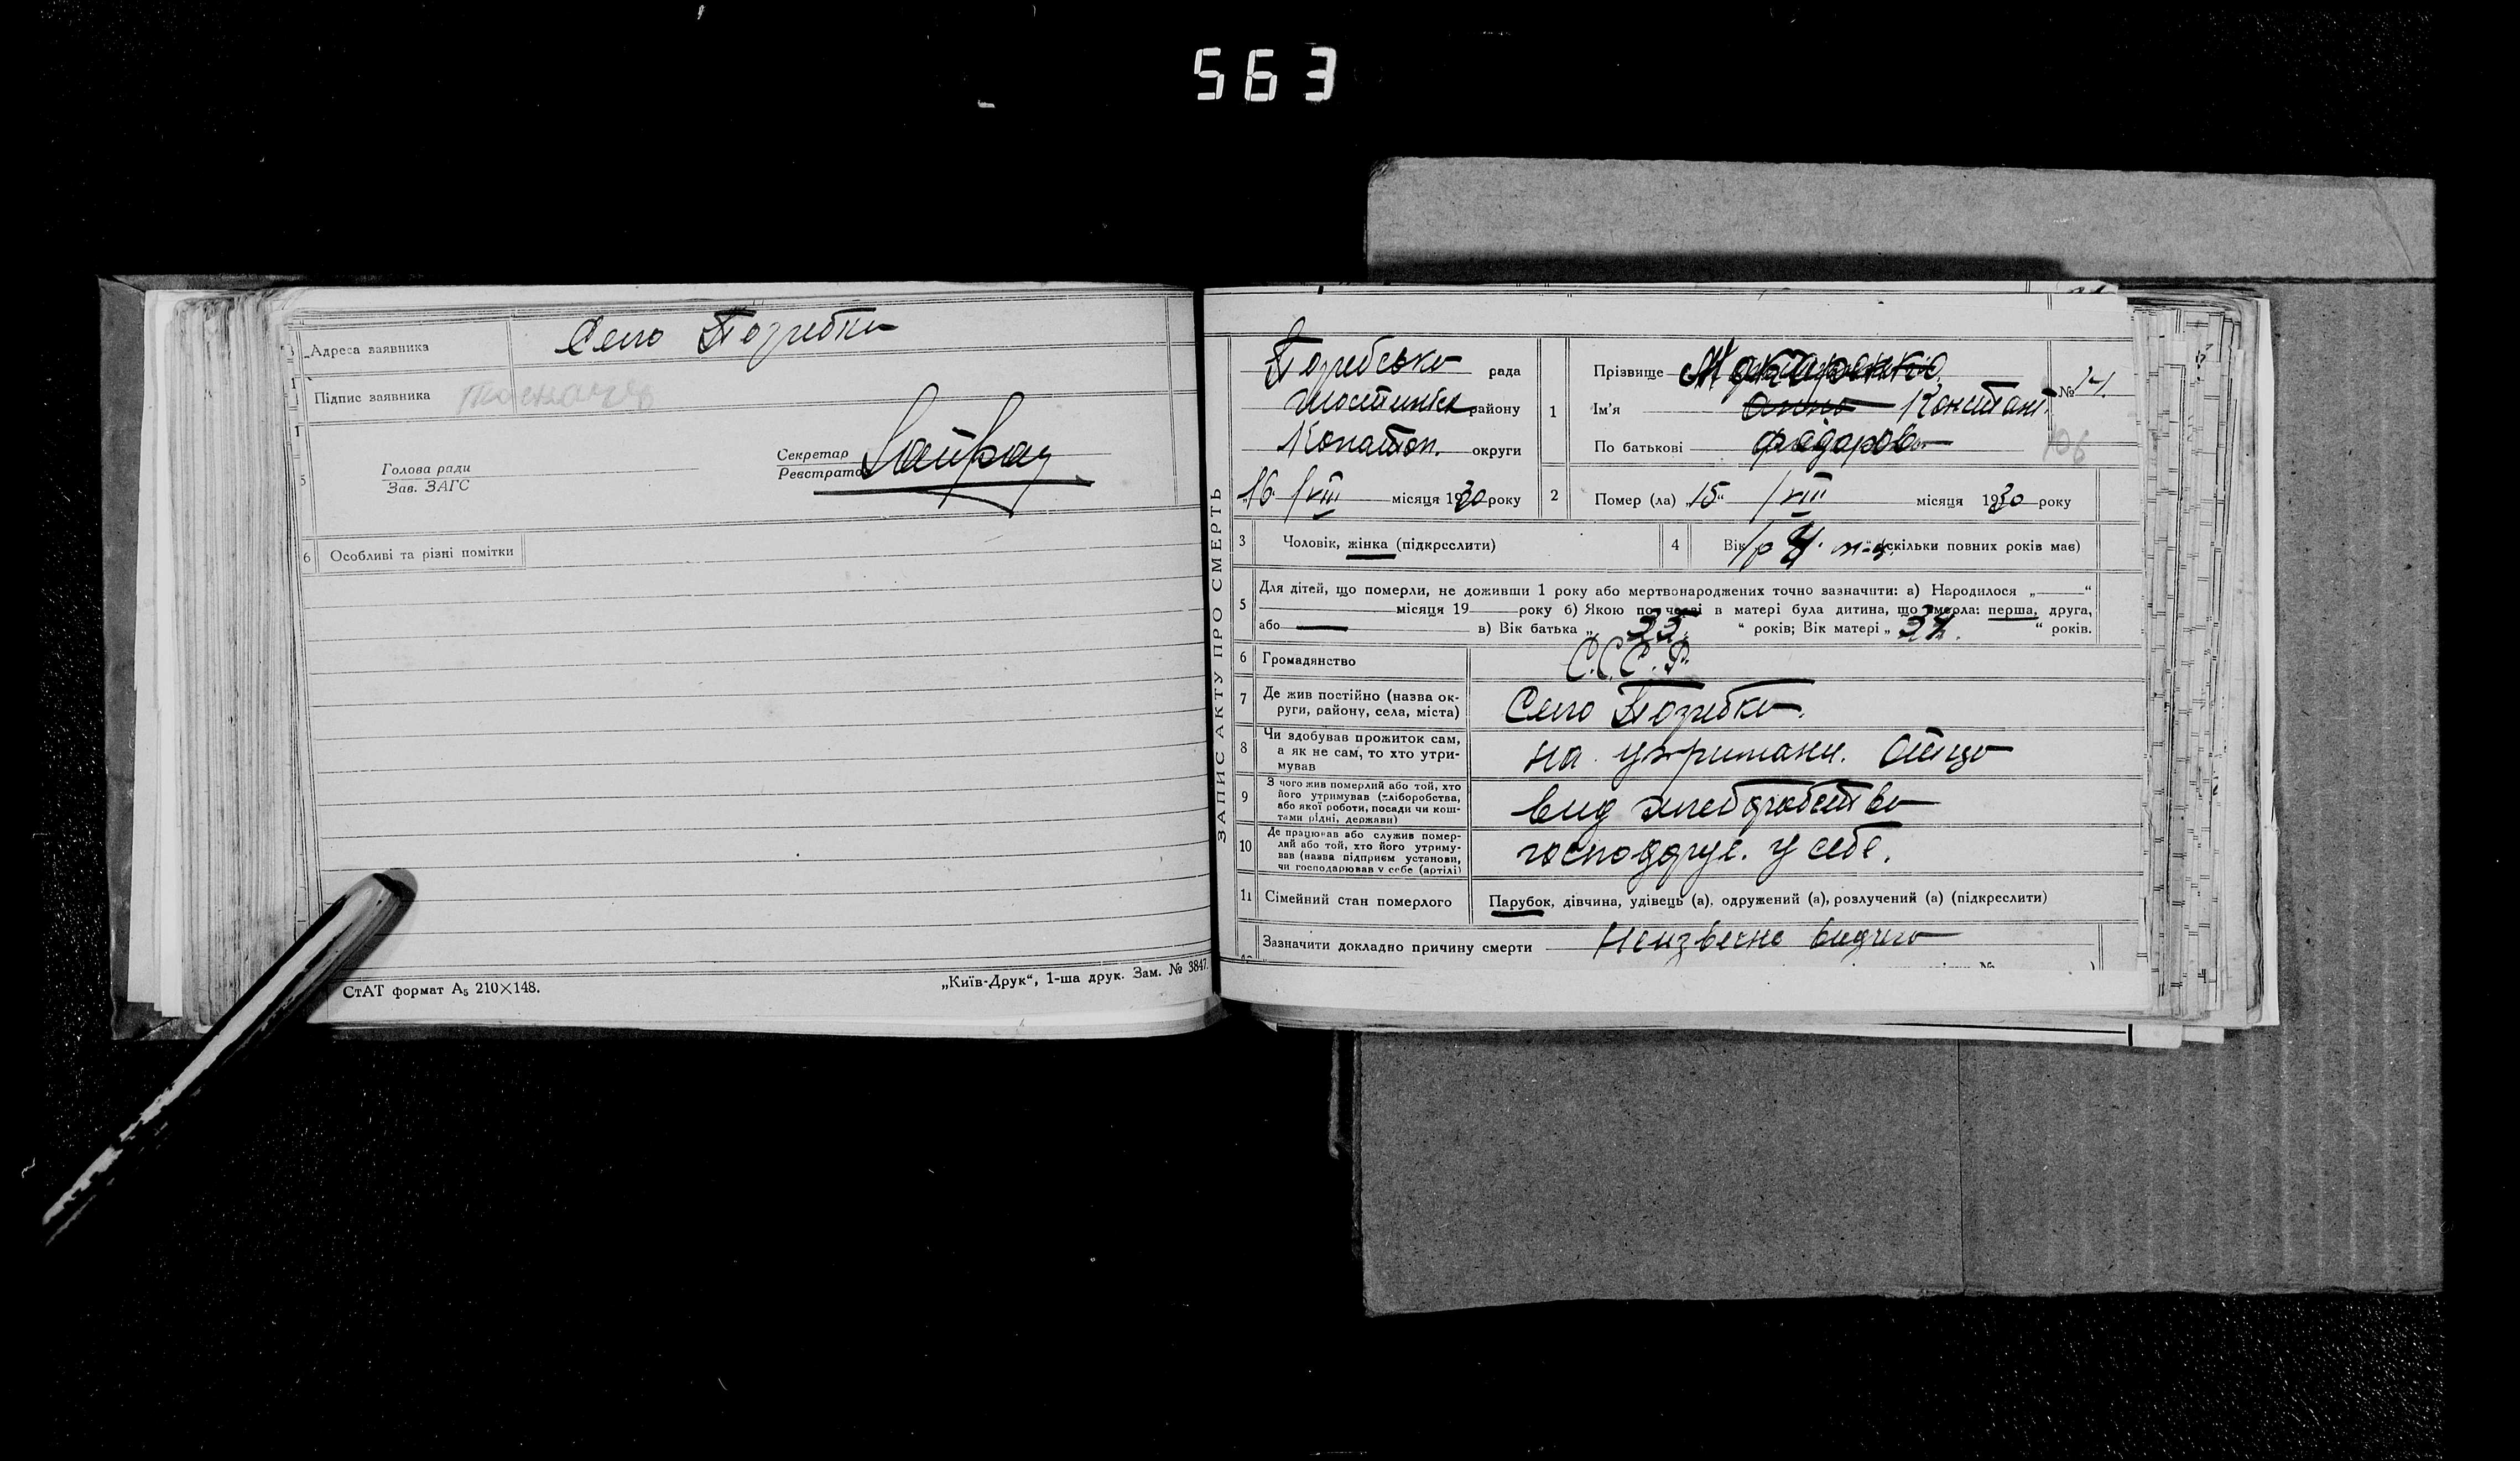 563
Адреса заявника Село Погребки
Підпис заявника
Голова ради
Зав. ЗАГС
Секретар
Реєстратор
6 Особливі та різні помітки
СтАТ формат А₅ 210×148.
„Київ-Друк“, 1-ша друк. Зам. № 3847.
ЗАПИС АКТУ ПРО СМЕРТЬ
Погребсько рада
району
округи
16 / VIII місяця 1930 року
1 Прізвище
Ім'я Анна Констант.
По батькові Фядарово
№ 14.
106
2 Помер (ла) „15“ / VIII місяця 1930 року
3 Чоловік, жінка (підкреслити)
4 Вік (скільки повних років має)
5 Для дітей, що померли, не доживши 1 року або мертвонароджених точно вазначити: а) Народилося „ “
місяця 19 року б) Якою по черзі в матері була дитина, що вмерла: перша, друга,
або в) Вік батька „ “ років; Вік матері „ “ років.
6 Громадянство С.С.С.Р.
7 Де жив постійно (назва ок-
руги, району, села, міста) Село Погребки.
8 Чи здобував прожиток сам,
а як не сам, то хто утри-
мував на утримани. Отцо
9 З чого жив померлий або той, хто
його утримував (хліборобства,
або якої роботи, посади чи кош-
тами рідні, держави) вид хлеборобство
10 Де працював або служив помер-
лий або той, хто його утриму-
вав (назва підприєм установи,
чи господарював у себе (артілі) у себе.
11 Сімейний стан померлого Парубок, дівчина, удівець (а), одружений (а), розлучений (а) (підкреслити)
Зазначити докладно причину смерти Неизвесно